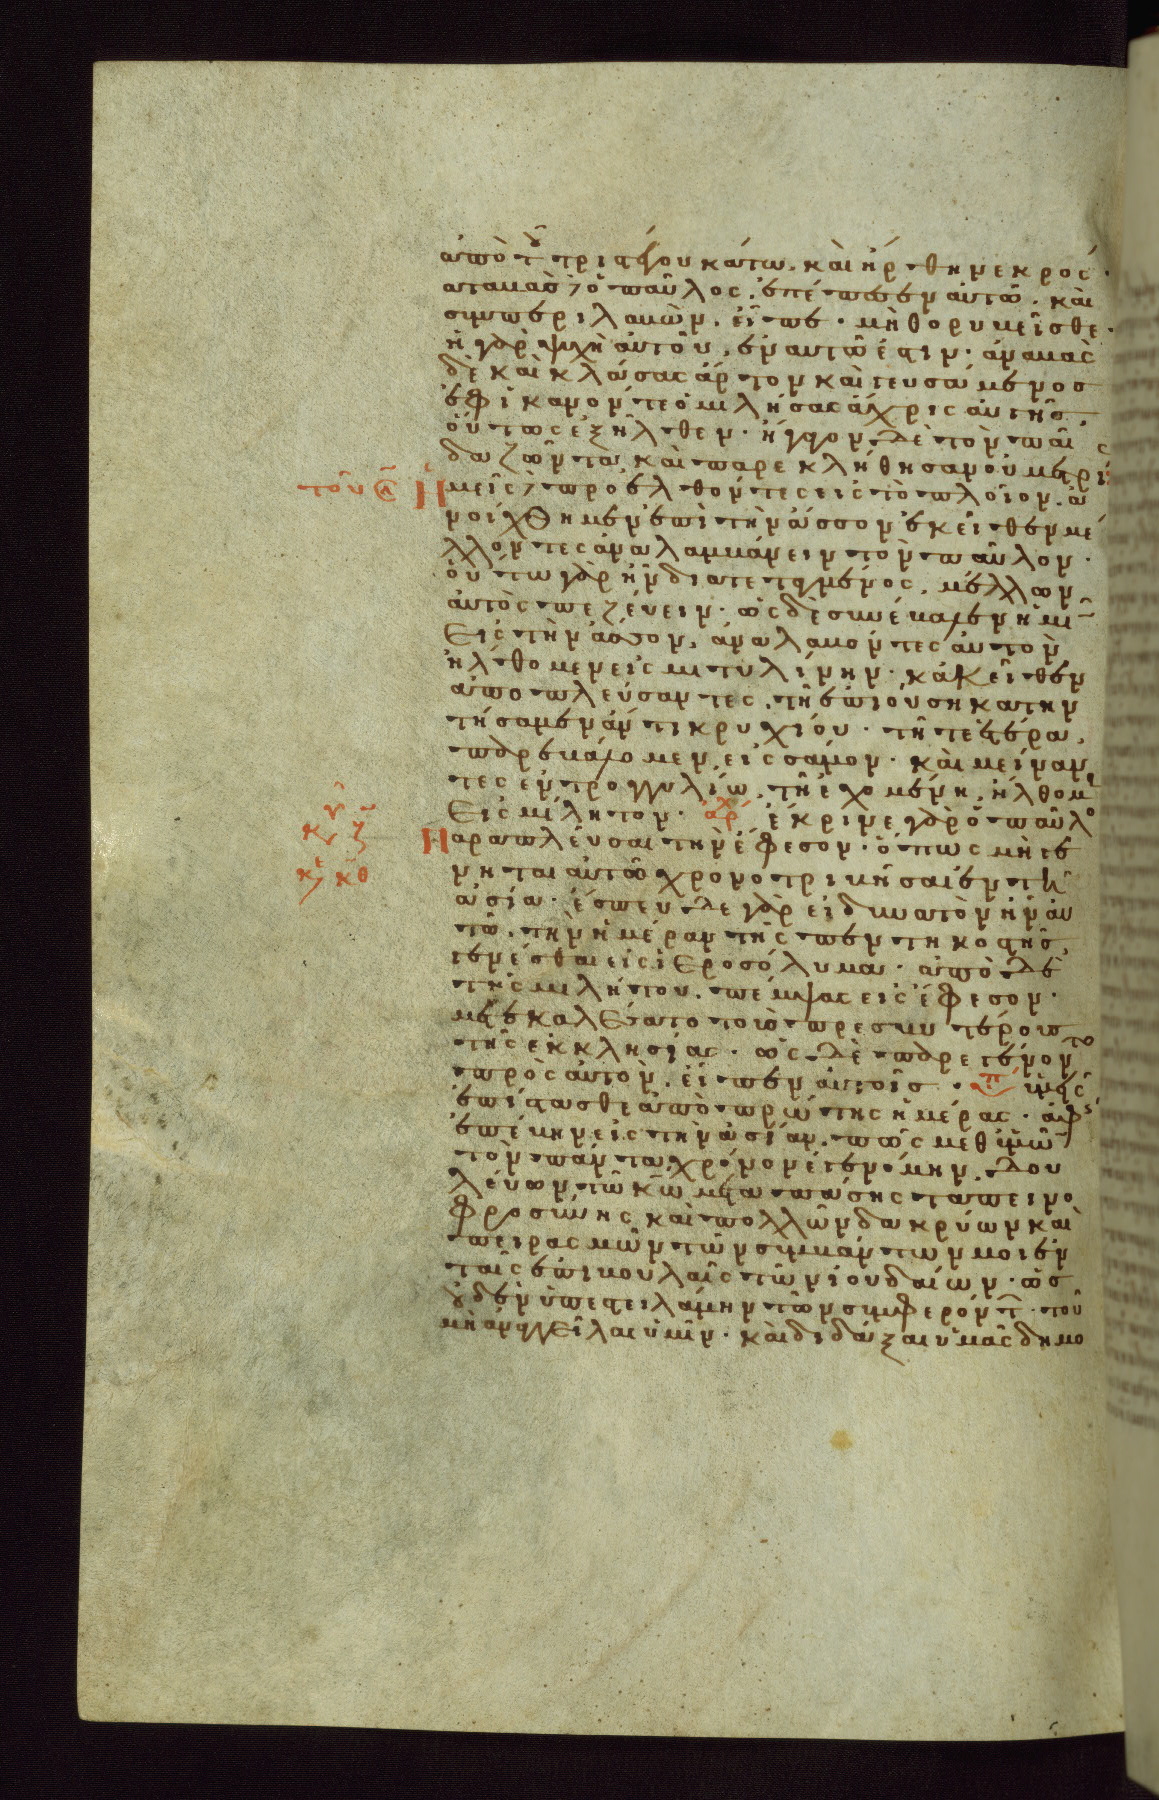 ἀπὸ τοῦ τριστέγου κάτω. καὶ ἤρθη νεκρός.
καταβὰς ὁ παῦλος, ἐπέπεσεν αὐτῶ. καὶ
συμπεριλαβὼν, εἶπε. μὴ θορυβεῖσθε.
ἡ γὰρ ψυχὴ αὐτοῦ, ἐν αυτῶ ἐστιν. ἀναβὰς
δὲ καὶ κλάσας ἄρτον καὶ γευσάμενος
ἐφ ικανόν τε ὁμιλήσας ἄχρις αὐγῆς,
οὕτως ἐξῆλθεν. ἤγαγον δὲ τὸν παῖ
δα ζῶντα, καὶ παρεκλήθησαν οὐ μετρίως
ἡμεῖς προελθόντες εις τὸ πλοῖον. ἀ
νοίχθημεν ἐπὶ τὴν ἄσσον ἐκεῖθεν μέ
λλοντες ἀναλαμβάνειν τὸν παῦλον.
οὕτω γὰρ ἦν διατεταγμένος, μέλλων
αὐτὸς πεζεύειν. ὡς δὲ συνέβαλεν ἡμῖ
εἰς τὴν ἄσσον, ἀναλαβόντες αὐτὸν
ἤλθομεν εἰς μιτυλίνην. κἀκεῖθεν
ἀποπλεύσαντες, τῆ ἐπιούση κατην
τήσαμεν ἄντικρυ χίου. τῆ τε ἑσπέρα,
παρεβάλομεν εἰς σάμον. καὶ μείναν
τες εν τρογγυλίω, τῆ ἐχομένη ἤλθομεν
εἰς μίλητον. ἀρχ ἔκρινε γὰρ ὁ παῦλο
παραπλεῦσαι τὴν ἔφεσον. ὅπως μὴ γέ
νηται αὐτῶ χρονοτριβῆσαι ἐν τῆ
ἀσία. ἔσπευδε γὰρ εἰ δυνατὸν ἦν αὐ
τῶ, τὴν ἡμέραν τῆς πεντηκοστῆς,
γενέσθαι εἰς ἱεροσόλυμα. ἀπὸ δὲ
τῆς μιλήτου. πέμψας εἰς ἔφεσον.
μετεκαλέσατο τοὺς πρεσβυτέρους
τῆς ἐκκλησίας. ὡς δὲ παρεγένον το
πρὸς αὐτὸν, εἶπεν αὐτοῖς. ὑμεῖς
ἐπίστασθε ἀπὸ πρώτης ἡμέρας. ἀφ ἧς
ἐπέβην εἰς τὴν ἀσίαν. πῶς μεθ ὑμῶν
τὸν πάντα χρόνον ἐγενόμην. δου
λεύων τῶ κω μετὰ πάσης ταπεινο
φροσύνης καὶ πολλῶν δακρύων καὶ
πειρασμῶν τῶν συμβάντων μοι ἐν
ταῖς ἐπιβουλαῖς τῶν ιουδαίων. ὡς
οὐδὲν ὑπεστειλάμην τῶν συμφερόντων. τοῦ
μὴ ἀναγγεῖλαι ὑμῖν. καὶ διδάξαι ὑμᾶς δημο